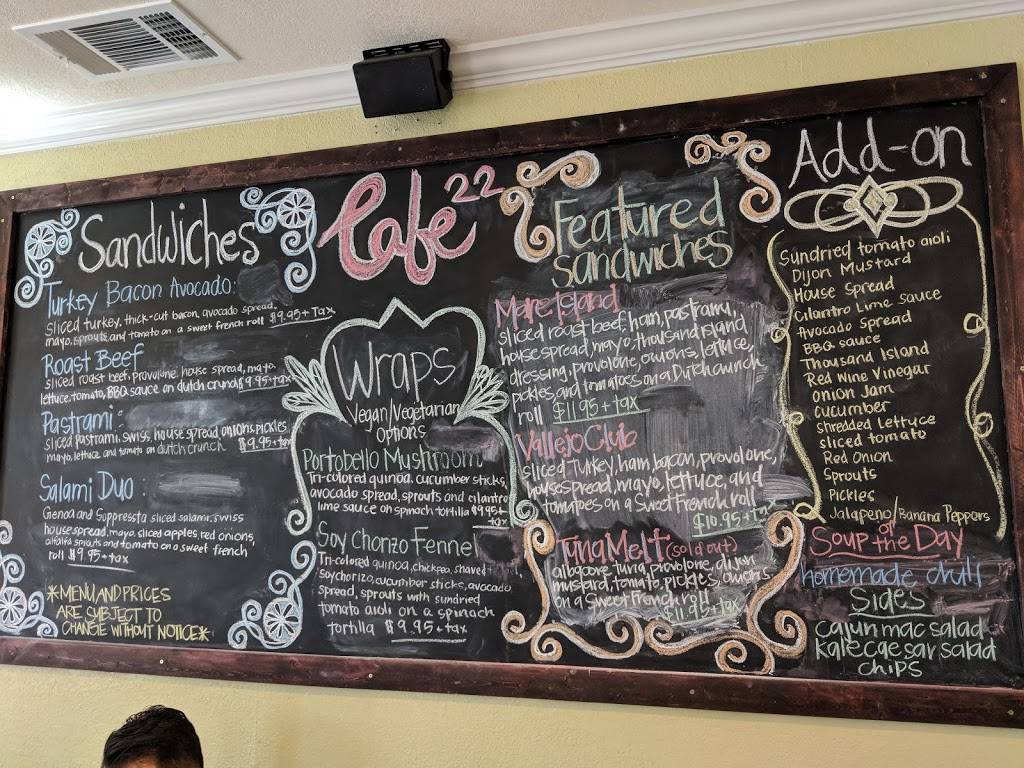 Sandwiches
Turkey Bacon Avocado:
sliced turkey, thick-cut bacon, avocado spread,
mayo, sprouts, and tomato on a sweet french roll $9.95 + Tax
Roast Beef
sliced roast beef, provolone, house spread, mayo,
lettuce, tomato, BBQ sauce on dutch crunch $9.95+tax
Pastrami:
sliced pastrami, swiss, house spread, onions, pickles,
mayo, lettuce and tomato on dutch crunch $9.95+tax
Salami Duo:
Genoa and Suppressta sliced salami, swiss
house spread, mayo, sliced apples, red onions,
alfalfa sprouts and tomato on a sweet french
roll $9.95 + tax
*MENU AND PRICES
ARE SUBJECT TO
CHANGE WITHOUT NOTICE*
Cafe 22
Wraps
Vegan/Vegetarian
Options
Portobello Mushroom
Tri-colored quinoa, cucumber sticks,
avocado spread, sprouts and cilantro
lime sauce on spinach tortilla $9.95+
tax
Soy Chorizo Fennel
Tri-colored quinoa, chickpea, shaved
soy chorizo, cucumber sticks, avocado
spread, sprouts with sundried
tomato aioli on a spinach
tortilla $9.95+tax
Featured
Sandwiches
Mare Island
sliced roast beef, ham, pastrami,
house spread, mayo, thousand island
dressing, provolone, onions, lettuce,
pickles, and tomatoes on a Dutch crunch
roll $11.95 + tax
Vallejo Club
sliced Turkey, ham, bacon, provolone,
house spread, mayo, lettuce, and
tomatoes on a Sweet French roll
$10.95+tax
Tuna Melt (sold out)
albacore tuna, provolone, dijon
mustard, tomato, pickles, onions
on a Sweet French roll
$11.95+tax
Add-on
Sundried tomato aioli
Dijon Mustard
House Spread
Cilantro Lime Sauce
Avocado Spread
BBQ sauce
Thousand Island
Red Wine Vinegar
Onion Jam
Cucumber
Shredded Lettuce
Sliced tomato
Red Onion
Sprouts
Pickles
Jalapeno/Banana Peppers
Soup of the Day
homemade chili
Sides
cajun mac salad
kale caesar salad
chips